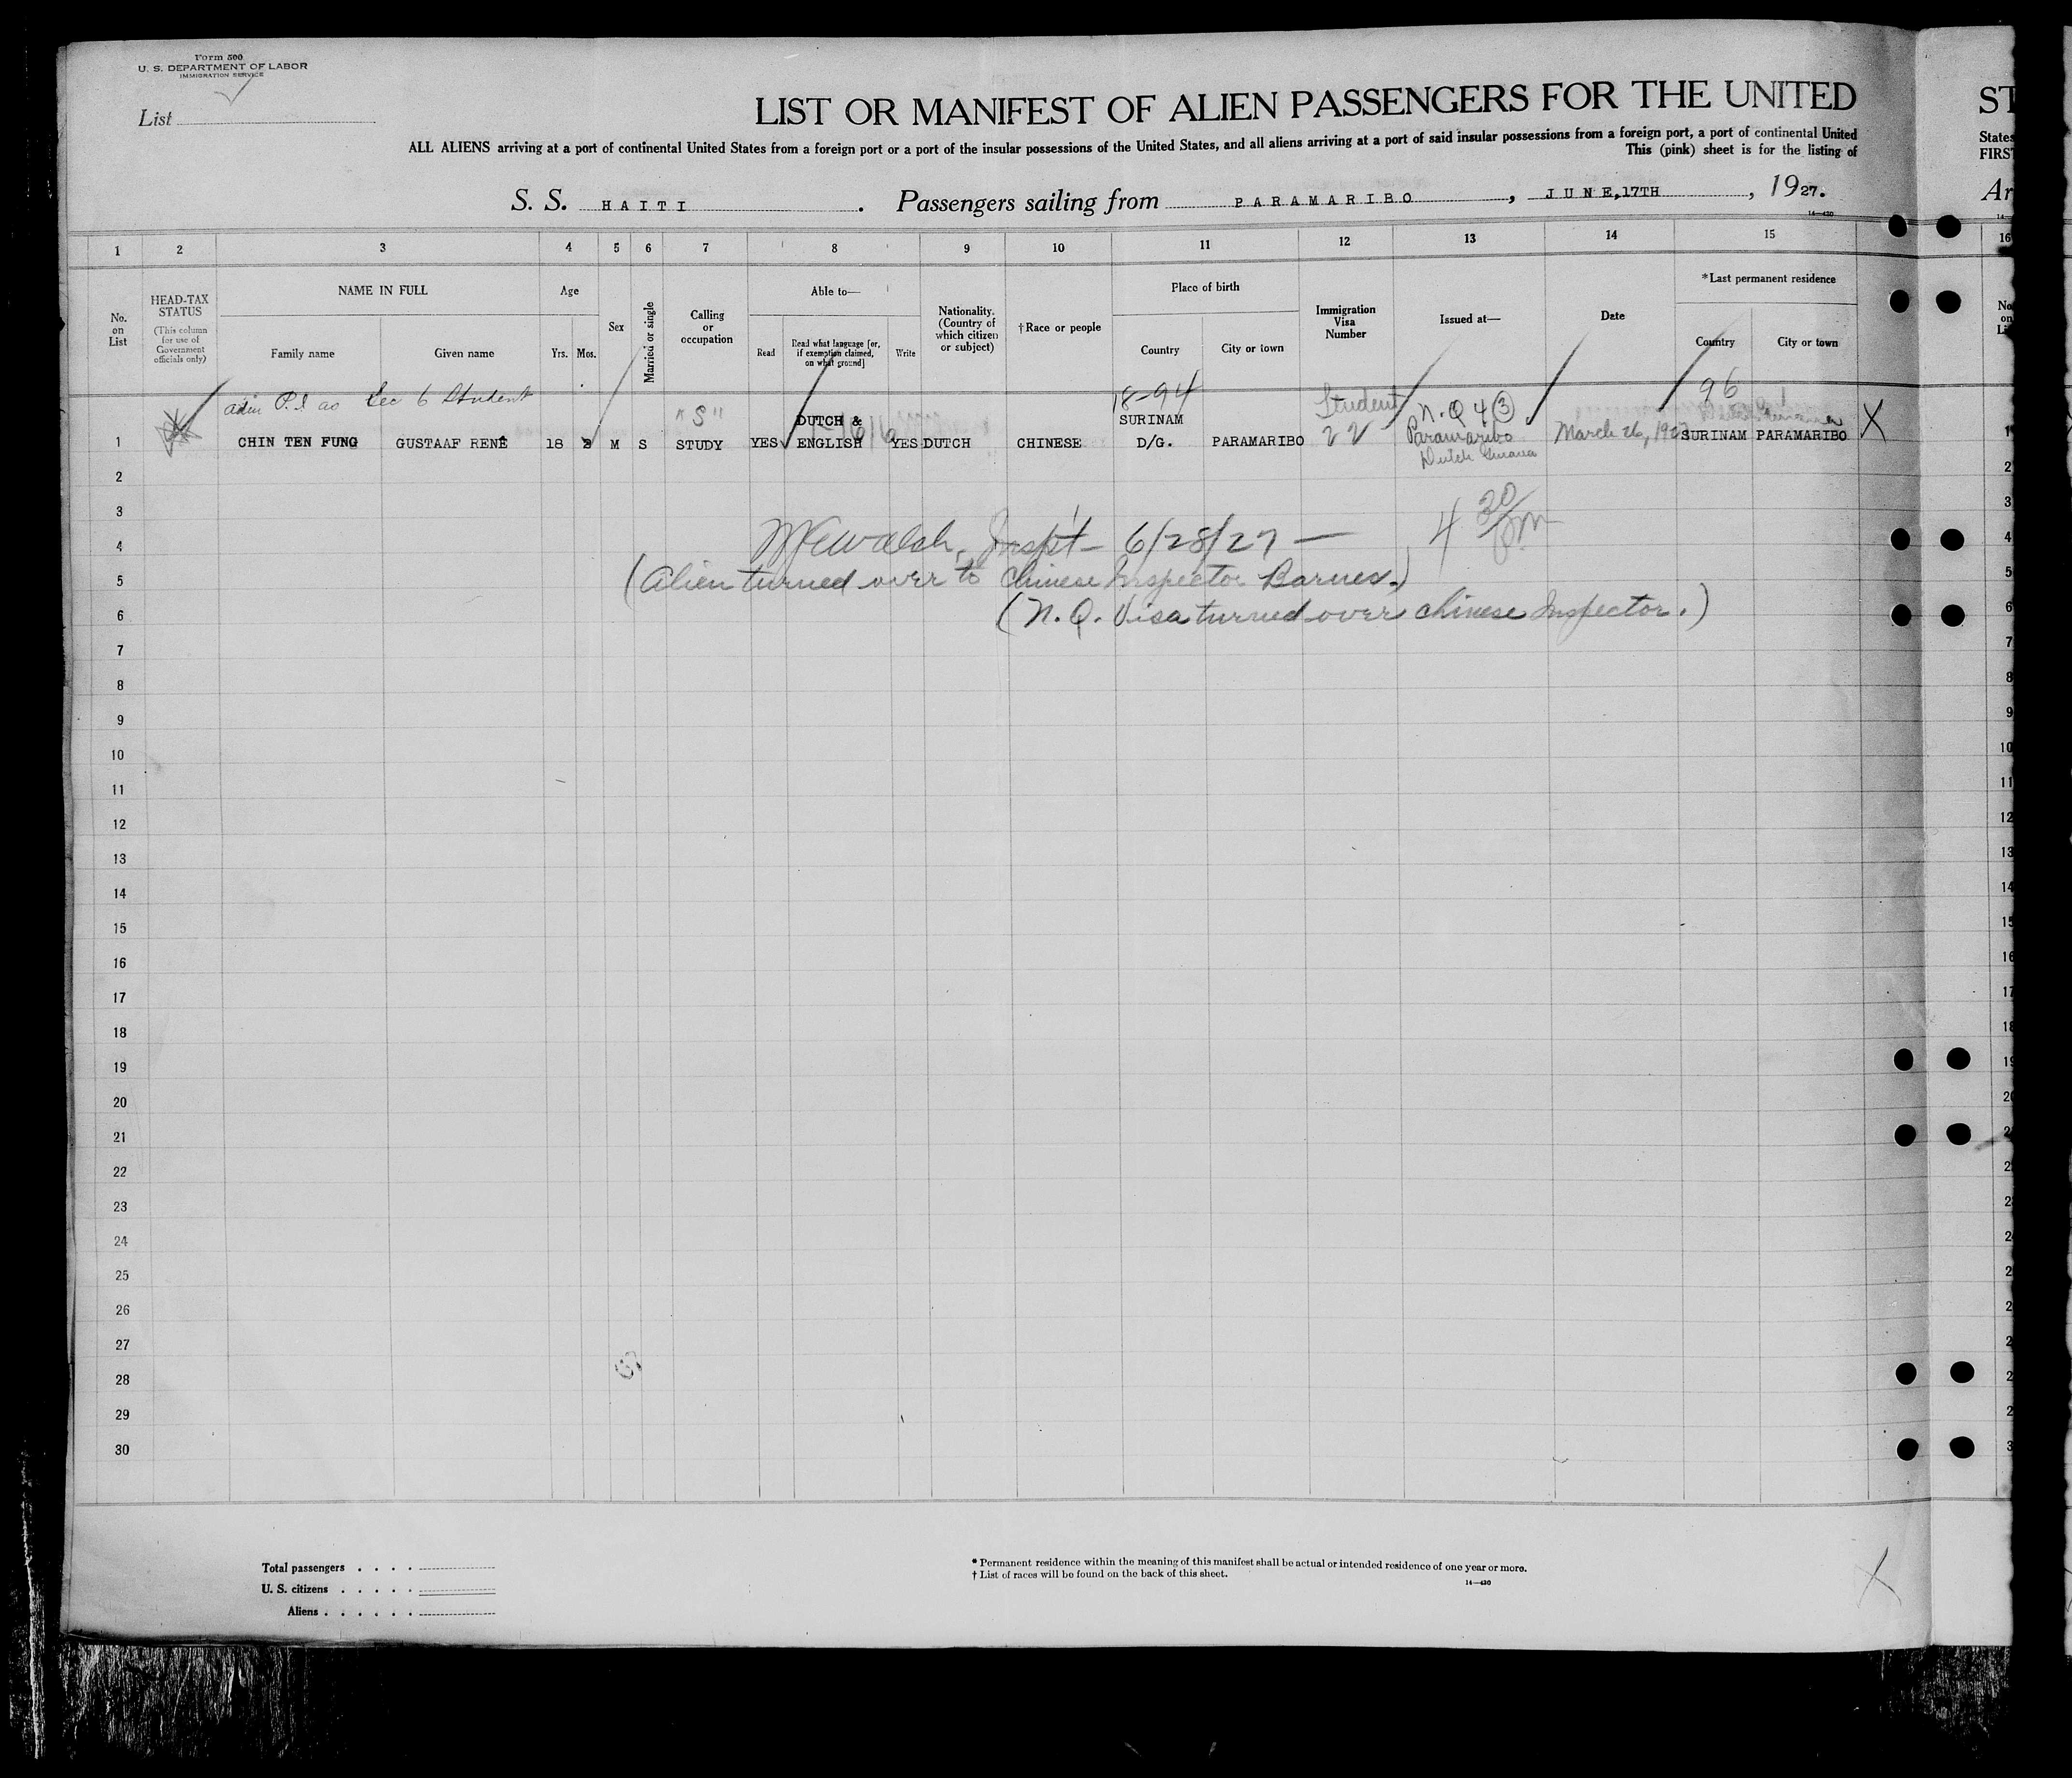 Form 500
U. S. DEPARTMENT OF LABOR
IMMIGRATION SERVICE
List
LIST OR MANIFEST OF ALIEN PASSENGERS FOR THE UNITED
ST
ALL ALIENS arriving at a port of continental United States from a foreign port or a port of the insular possessions of the United States, and all aliens arriving at a port of said insular possessions from a foreign port, a port of continental United
States
This (pink) sheet is for the listing of
FIRST
S. S. HAITI. Passengers sailing from PARAMARIBO, JUNE, 17TH, 1927.
Ar
14—430
1 2 3 4 5 6 7 8 9 10 11 12 13 14 15 16
No. on List
HEAD-TAX STATUS
(This column for use of Government officials only)
NAME IN FULL
Family name
Given name
Age
Yrs. Mos.
Sex
Married or single
Calling or occupation
Able to—
Read
Read what language [or, if exemption claimed, on what ground]
Write
Nationality. (Country of which citizen or subject)
†Race or people
Place of birth
Country
City or town
Immigration Visa Number
Issued at—
Date
*Last permanent residence
Country
City or town
adm P.I as Sec 6 Student
18-94
96
"S"
DUTCH &
SURINAM
Student
N.Q 4 (3)
1 CHIN TEN FUNG GUSTAAF RENÉ 18 M S STUDY YES ENGLISH YES DUTCH CHINESE D/G. PARAMARIBO 22 Paramaribo March 26, 1927 SURINAM PARAMARIBO X
Dutch Guiana
2
3
4 Inspt— 6/28/27 — 4 30/pm
5 (Alien turned over to Chinese Inspector Barnes.)
6 (N.Q. Visa turned over Chinese Inspector.)
7
8
9
10
11
12
13
14
15
16
17
18
19
20
21
22
23
24
25
26
27
28
29
30
Total passengers . . . .
U. S. citizens . . . . .
Aliens . . . . . .
* Permanent residence within the meaning of this manifest shall be actual or intended residence of one year or more.
† List of races will be found on the back of this sheet.
14—430
X